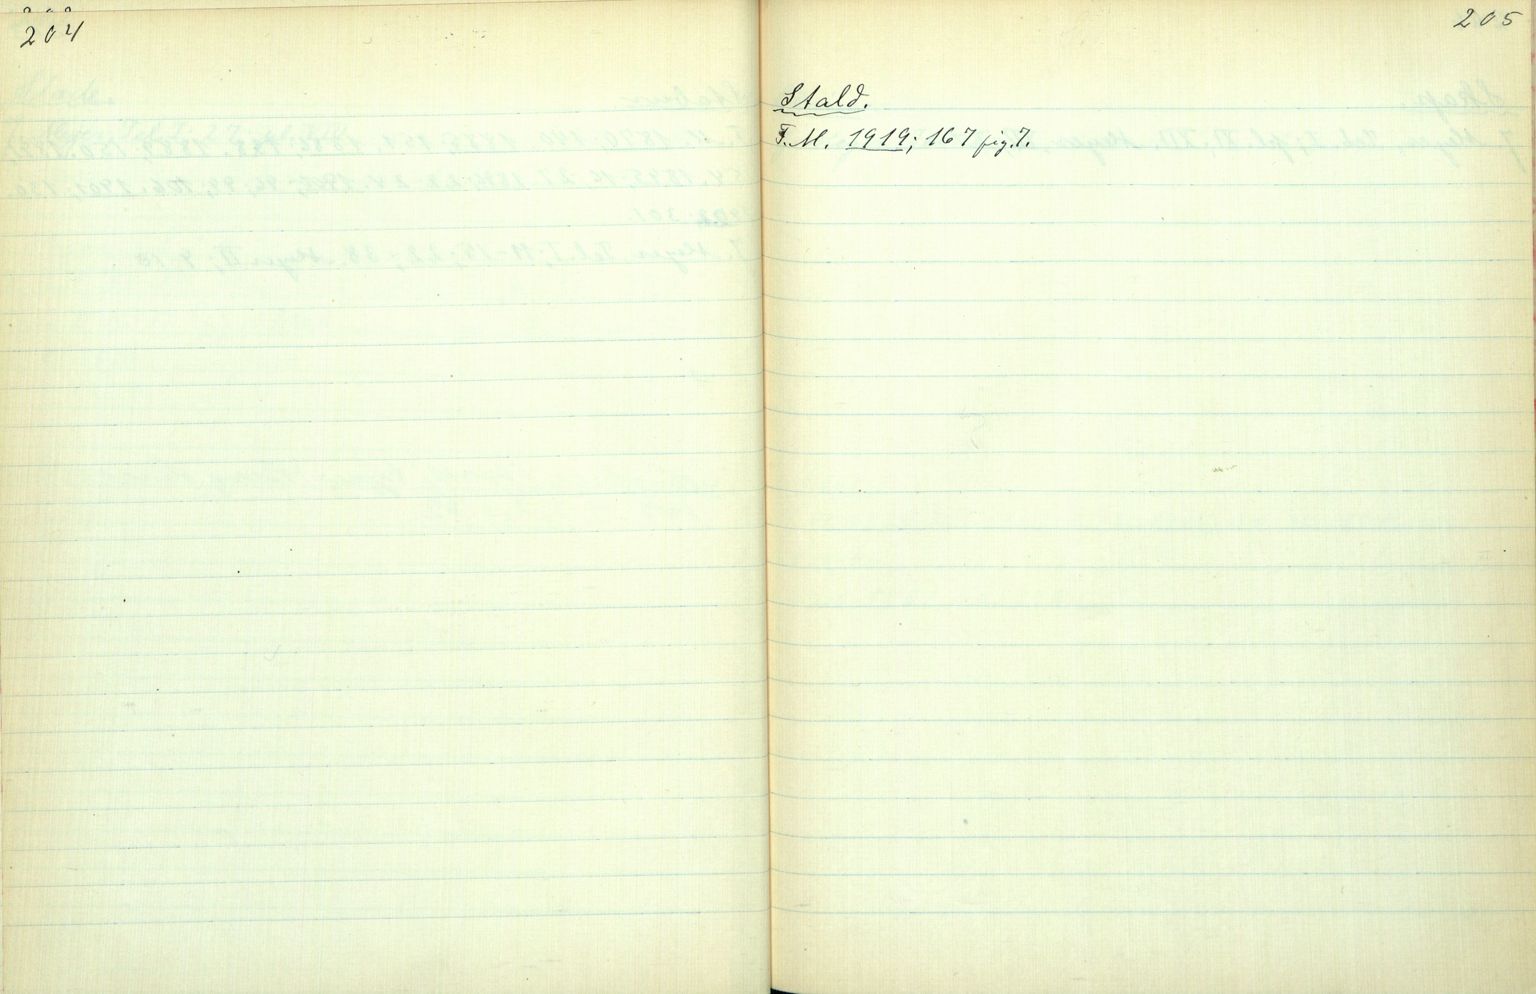 204
205
Stald.
F.M. 1919; 167 fig. 7.